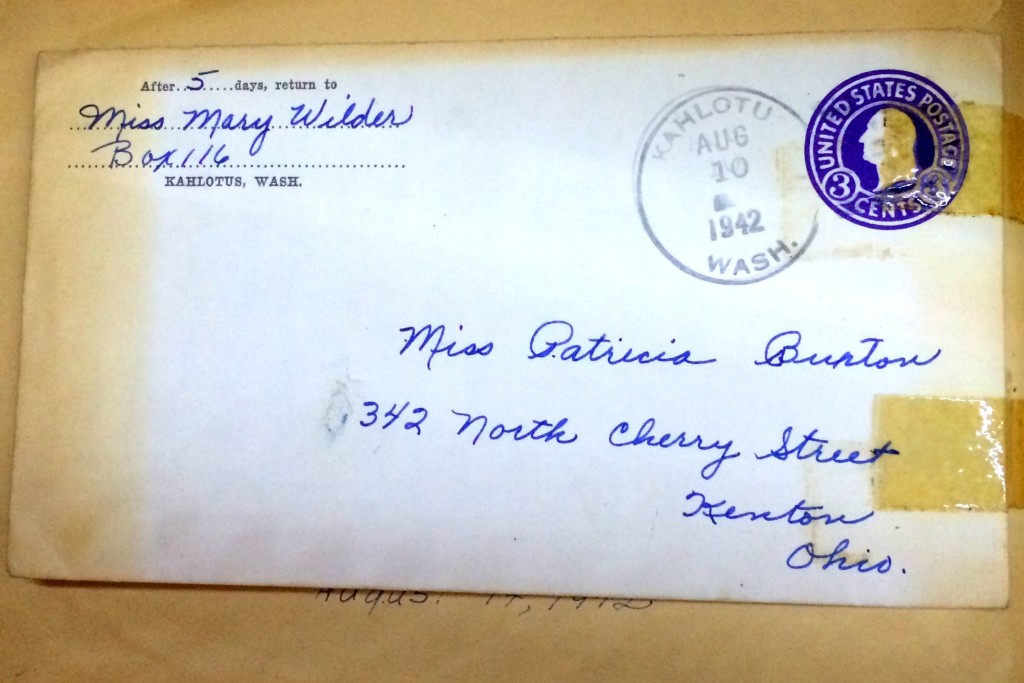 After..5.....days, return to
Miss Mary Wilder
Box 116
KAHLOTUS, WASH.
KAHLOTU
AUG
10
1942
WASH.
UNITED STATES POSTAGE
3 CENTS 3
Miss Patricia Burton
342 North Cherry Street
Kenton
Ohio.